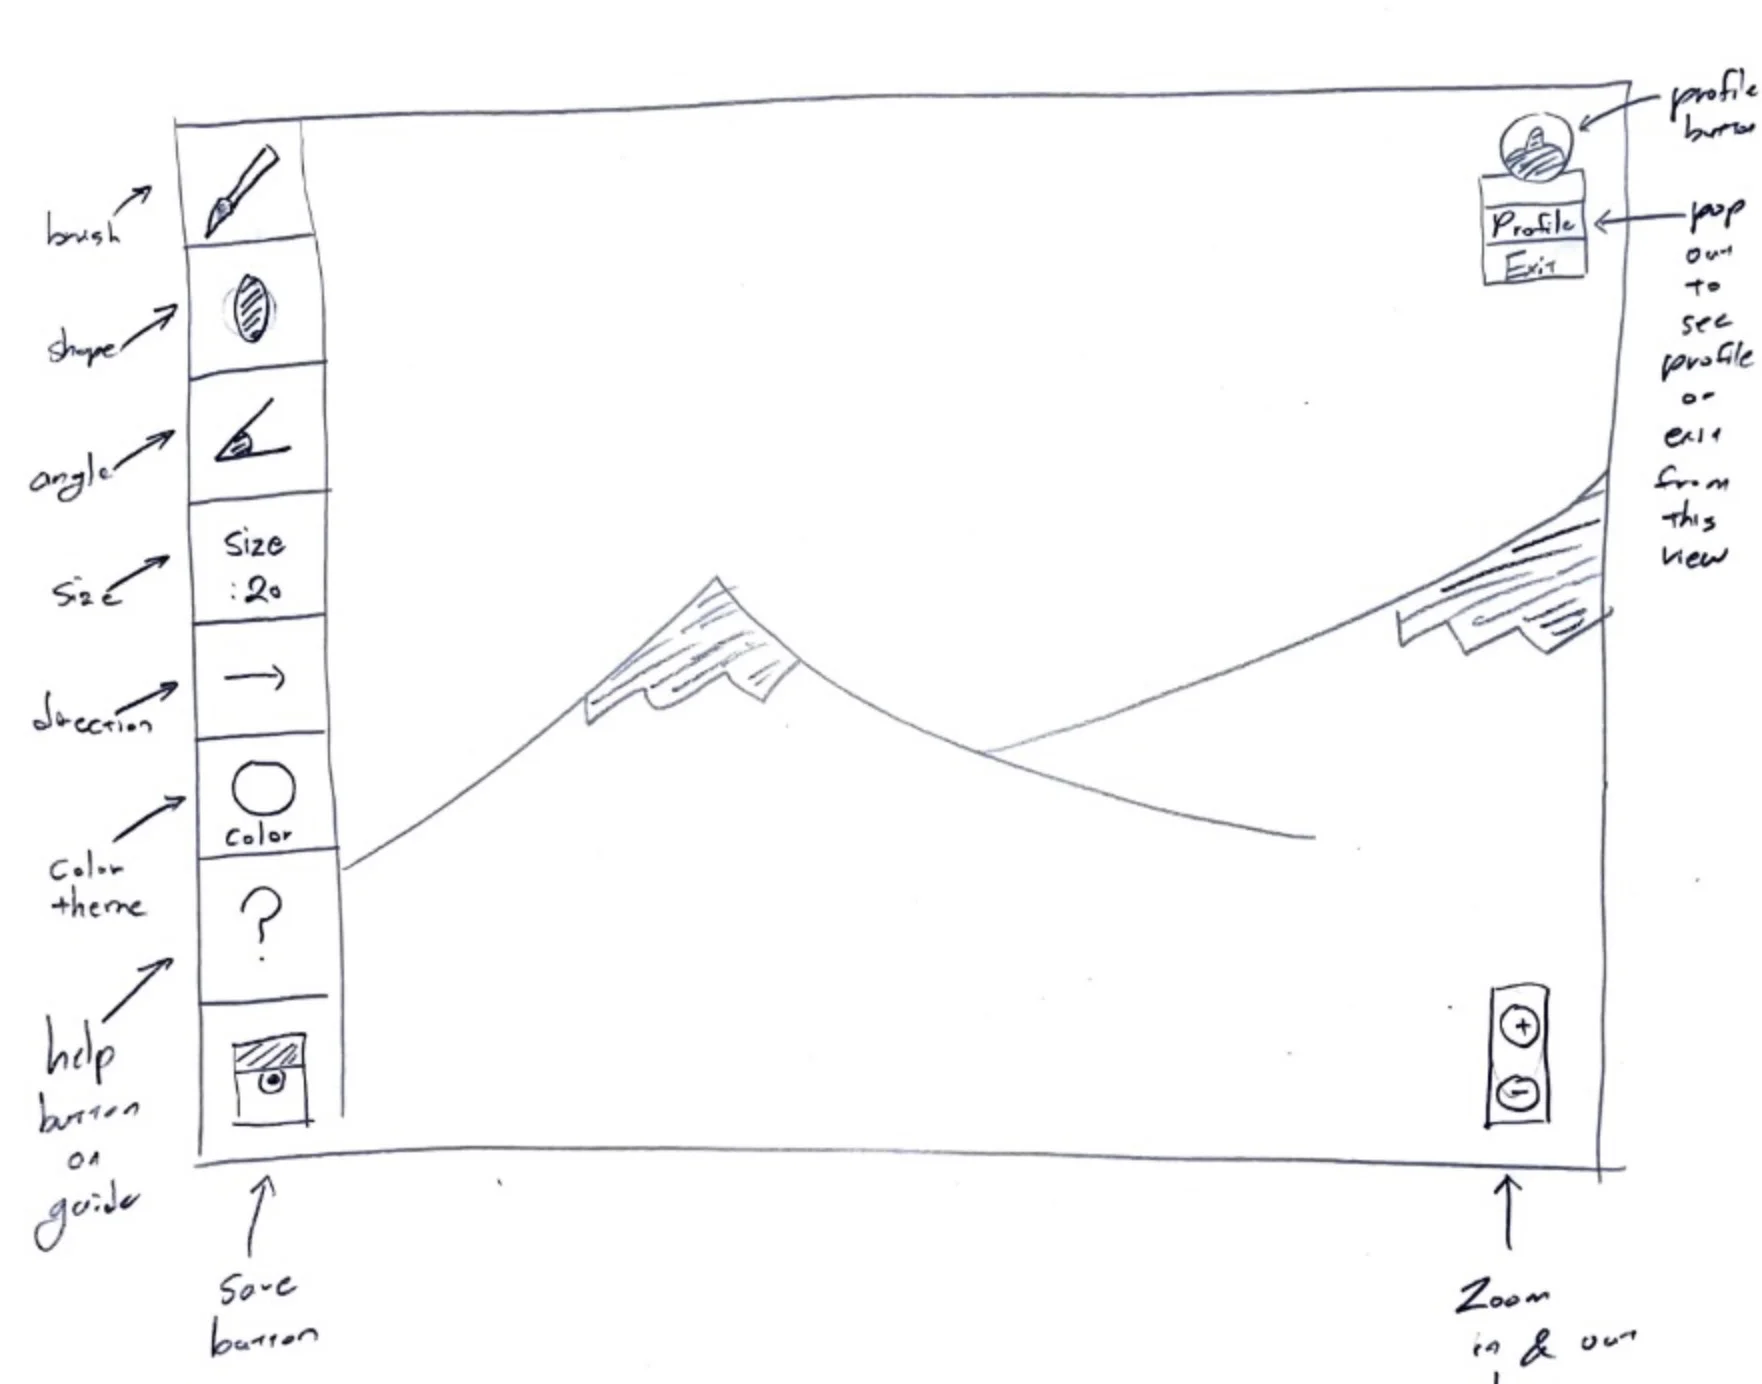 brush
shape
angle
size
direction
color
theme
help
button
or
guide
Size
:20
color
?
Save
button
profile
button
Profile
Exit
pop
out
to
see
profile
or
exit
from
this
view
+
-
Zoom
in & out